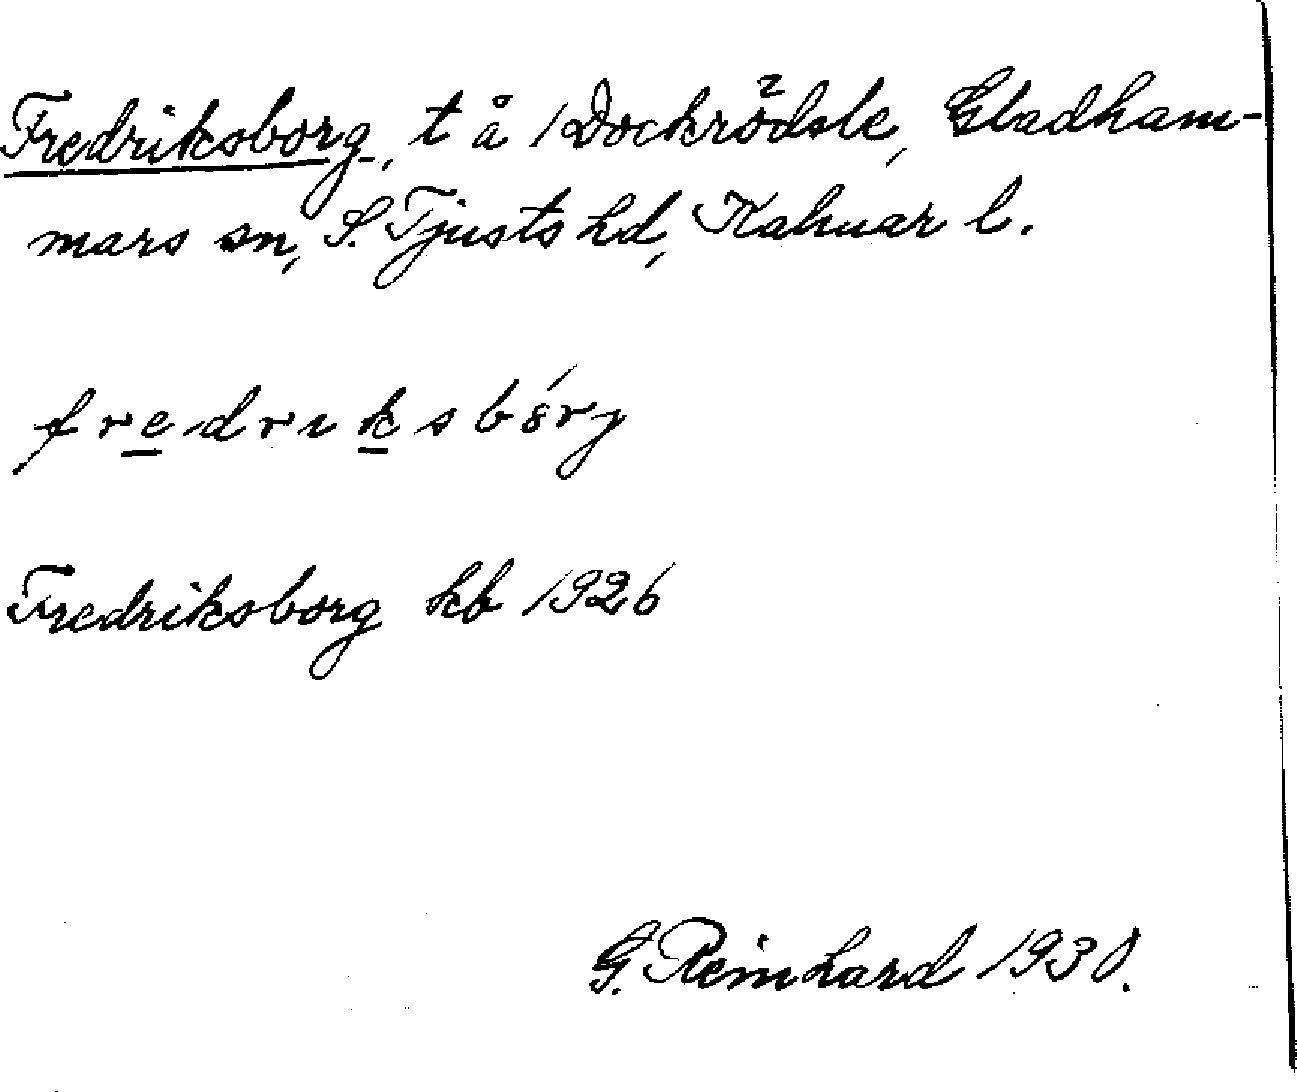 Fredriksborg, t å 1 Dockrödsle, Gladham-
mars sn, S. Tjusts hd, Kalmar l.
fredriksbórj
Fredriksborg kb 1926
G. Reinhard 1930.